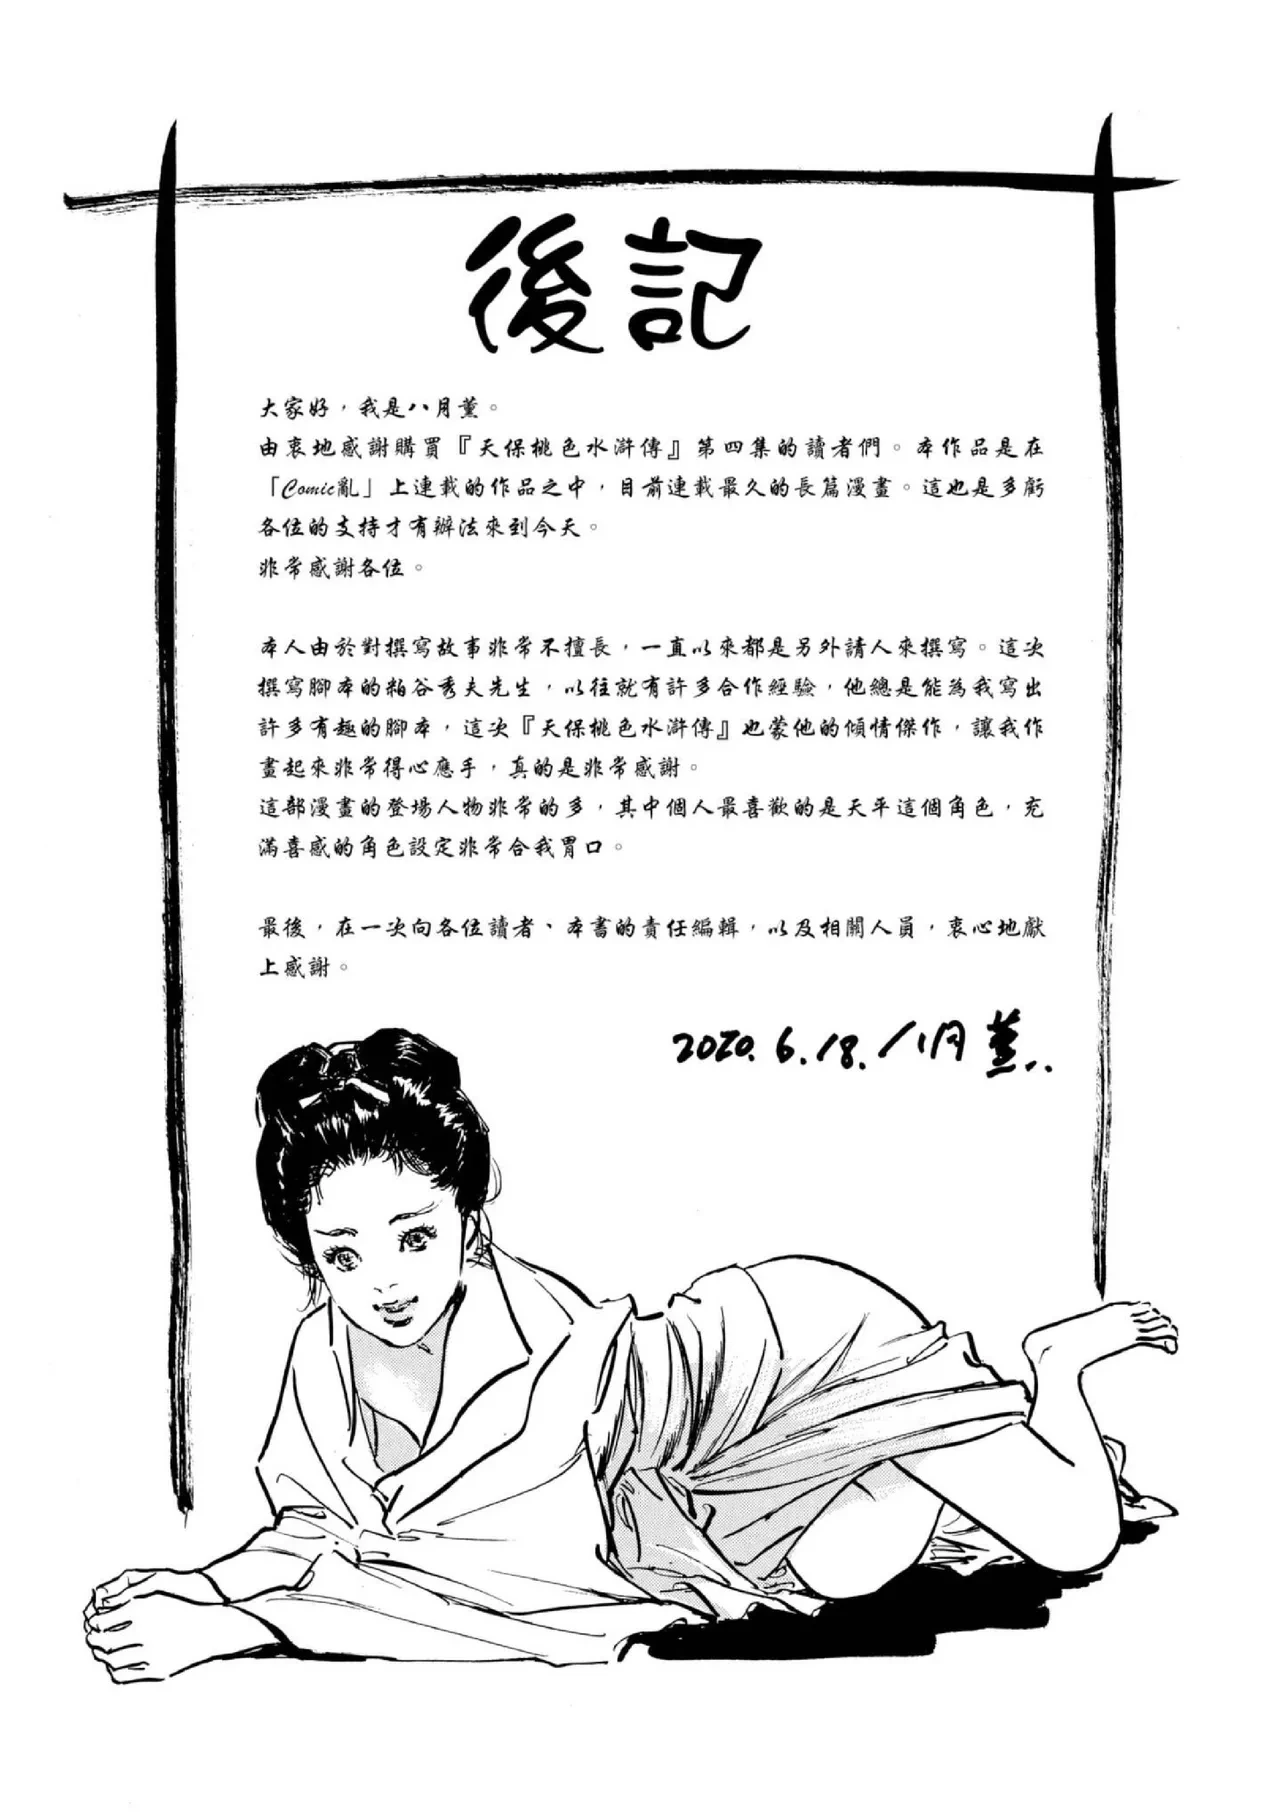 後記
大家好，我是八月薰。
由衷地感謝購買『天保桃色水滸傳』第四集的讀者們。本作品是在
「Comic亂」上連載的作品之中，目前連載最久的長篇漫畫。這也是多虧
各位的支持才有辦法來到今天。
非常感謝各位。
本人由於對撰寫故事非常不擅長，一直以來都是另外請人來撰寫。這次
撰寫腳本的粕谷秀夫先生，以往就有許多合作經驗，他總是能為我寫出
許多有趣的腳本，這次『天保桃色水滸傳』也蒙他的傾情傑作，讓我作
畫起來非常得心應手，真的是非常感謝。
這部漫畫的登場人物非常的多，其中個人最喜歡的是天平這個角色，充
滿喜感的角色設定非常合我胃口。
最後，在一次向各位讀者、本書的責任編輯，以及相關人員，衷心地獻
上感謝。
2020.6.18.八月薫..